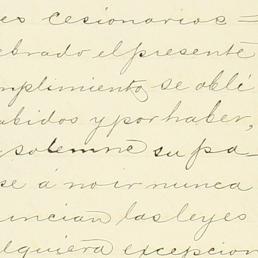 es cesionarios =
ebrado el presente
mplimiento se obli
abidos y por haber,
solemne su pa-
se á no ir nunca
uncian las leyes
lquiera excepcion